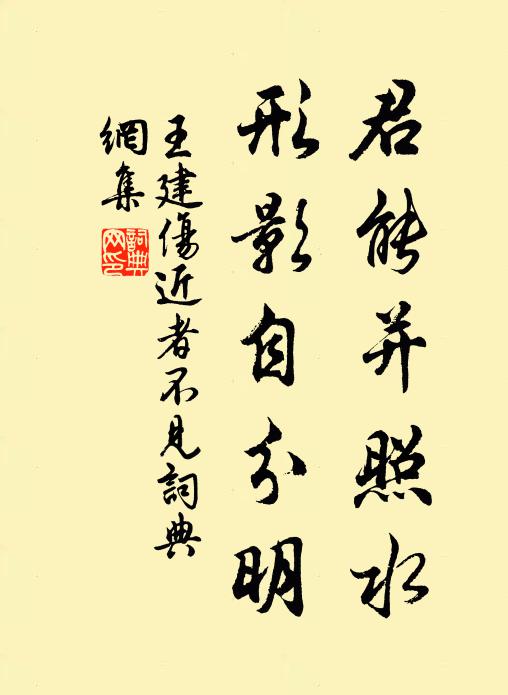 君能并照水
形影自分明
王建傷近者不見詞典
網集
詞典
网印